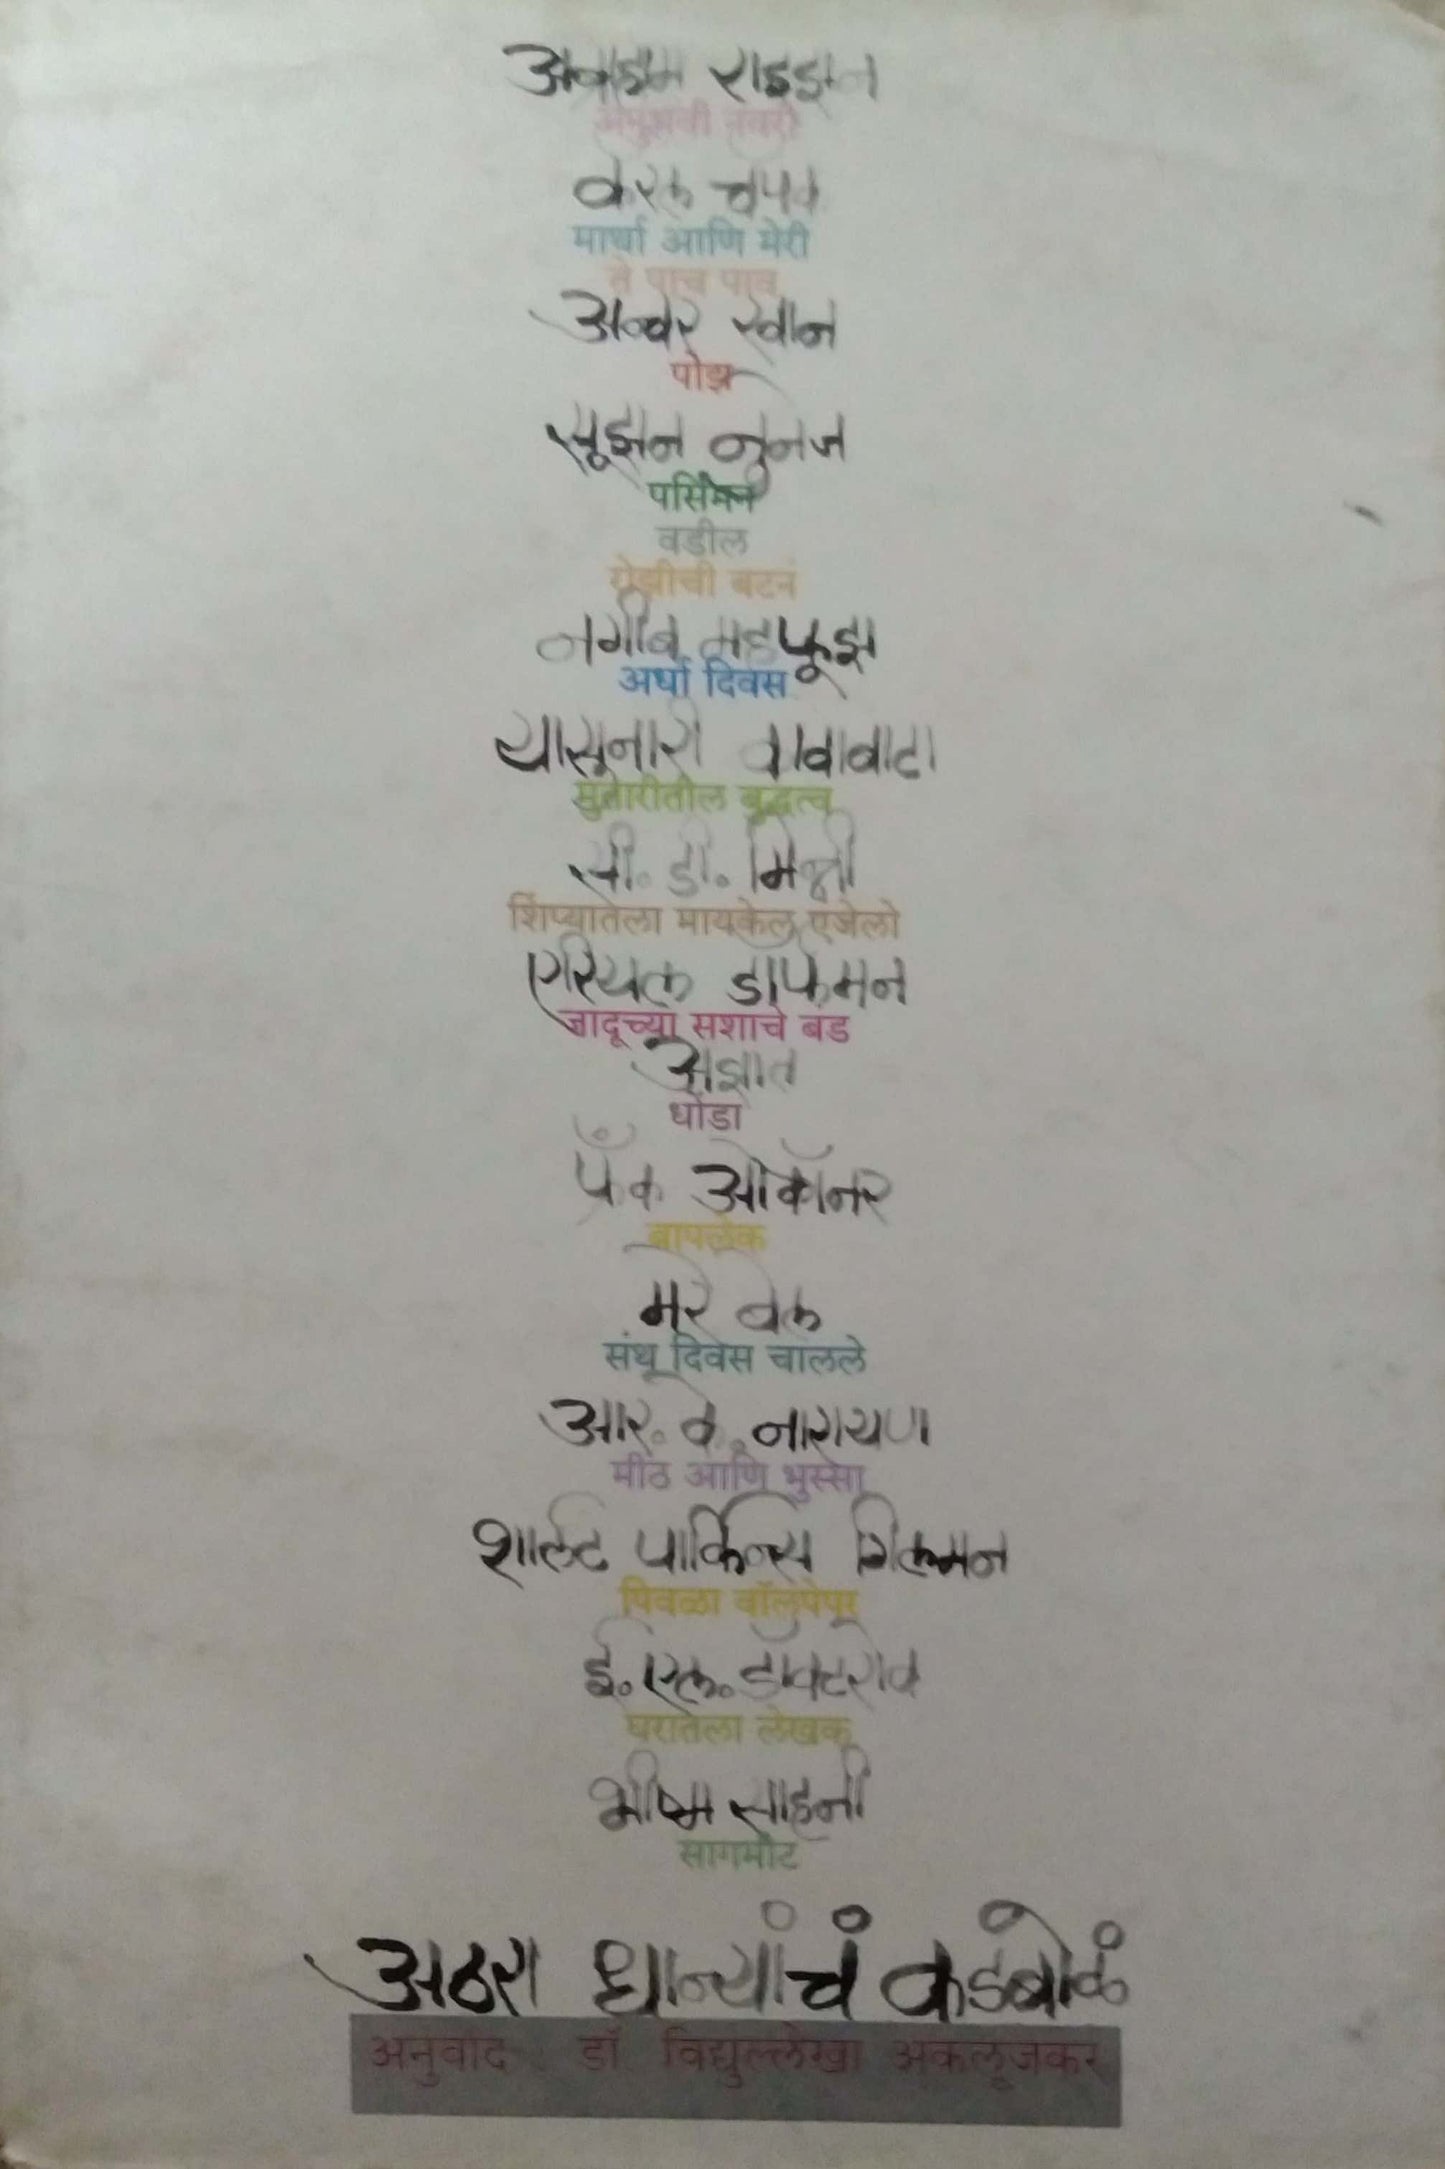 अब्राहम राइझन
नवरी
केरल चॅपेक
मार्था आणि मेरी
ते पाच पाव
अन्वर खान
पोझ
सूझन नुनेज
पर्सिमन
वडील
ग्रेझीची बटनं
नगीब महफूझ
अर्धा दिवस
यासूनारी कावाबाटा
मुतारीतील बुद्धत्व
सी. डी. मिन्नी
शिंप्यातला मायकेल एंजेलो
एरियल डॉर्फमन
जादूच्या सशाचे बंड
अज्ञात
धोंडा
फ्रँक ओकॉनर
बापलेक
मरे बेल
संथू दिवस चालले
आर. के. नारायण
मीठ आणि भुस्सा
शार्लट पार्किन्स गिलमन
पिवळा वॉलपेपर
ई. एल. डॉक्टरोव
घरातला लेखक
भीष्म साहनी
सागमीट
अठरा धान्यांचं कडंबोळं
अनुवाद डॉ. विद्युल्लेखा अकलूजकर